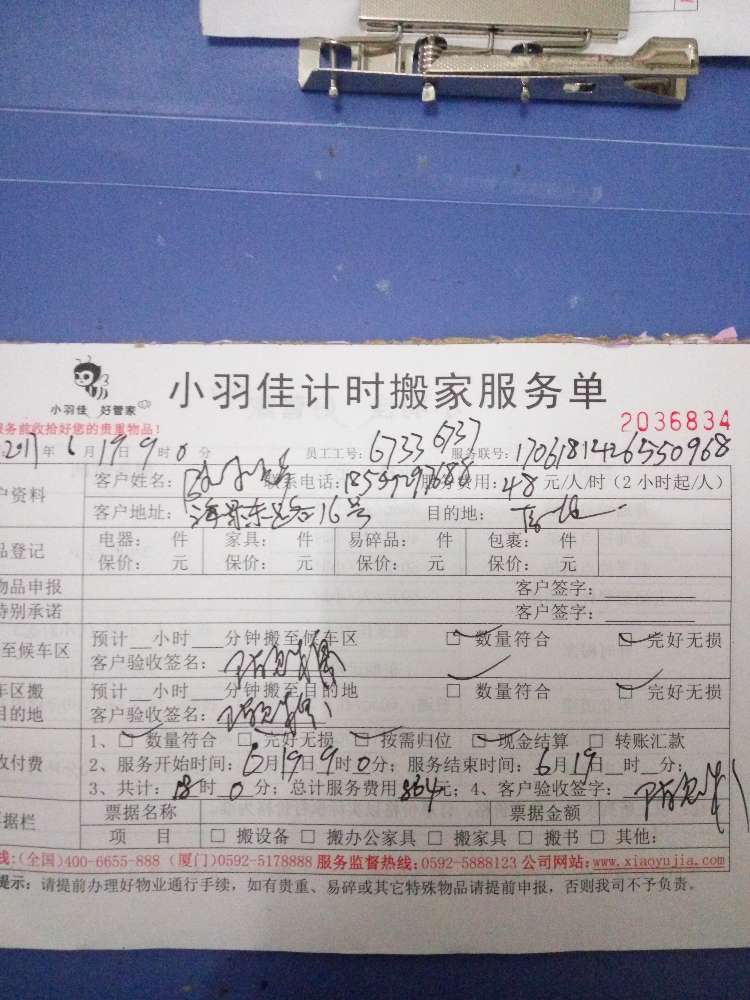 小羽佳 好管家
小羽佳计时搬家服务单
服务前收拾好您的贵重物品！
2036834
2017年6月19日9时0分 员工工号：6733 6737 服务联号：1706181426550968
户资料 客户姓名： 联系电话： 服务费用：48元/人/时（2小时起/人）
客户地址： 16号 目的地：
品登记 电器： 件 家具： 件 易碎品： 件 包裹： 件
保价： 元 保价： 元 保价： 元 保价： 元
物品申报 客户签字：
特别承诺 客户签字：
至候车区 预计__小时___分钟搬至候车区 □ 数量符合 □ 完好无损
客户验收签名：
车区搬 预计__小时___分钟搬至目的地 □ 数量符合 □ 完好无损
目的地 客户验收签名：
收付费 1、□ 数量符合 □ 完好无损 □ 按需归位 □ 现金结算 □ 转账汇款
2、服务开始时间：6月19日9时0分；服务结束时间：6月19日__时__分；
3、共计：18时0分；总计服务费用864元；4、客户验收签字：
票据栏 票据名称 票据金额
项 目 □ 搬设备 □ 搬办公家具 □ 搬家具 □ 搬书 □ 其他：
线：(全国)400-6655-888（厦门)0592-5178888 服务监督热线：0592-5888123 公司网站：www.xiaoyujia.com
提示：请提前办理好物业通行手续，如有贵重、易碎或其它特殊物品请提前申报，否则我司不予负责。